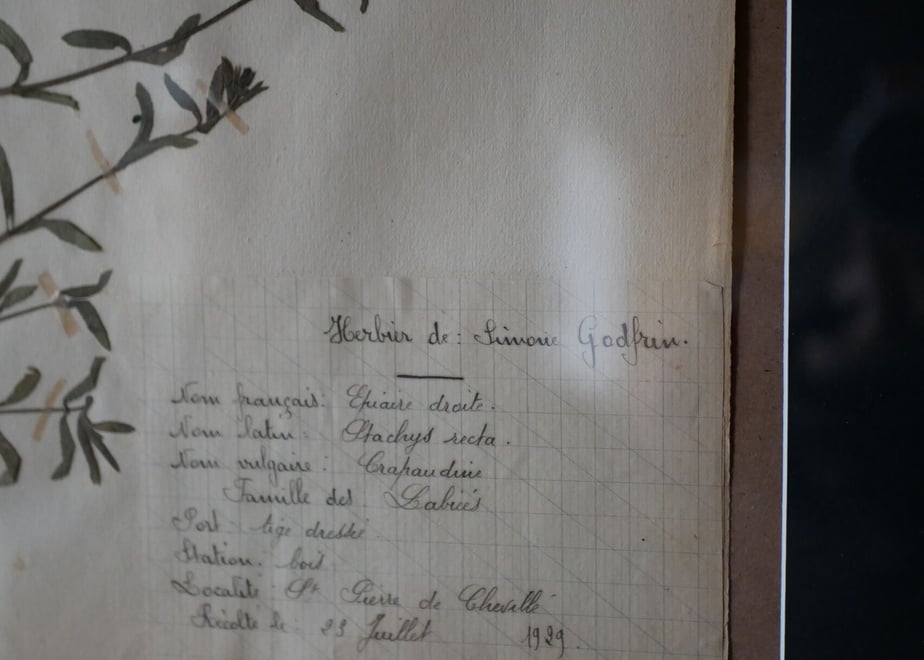 Herbier de : Simone Godfrin.
Nom français : Epiaire droite.
Nom latin : Stachys recta.
Nom vulgaire : Crapaudine
Famille des Labiées
Port : tige dressée
Station : bois
Localité : St Pierre de Chevillé
Récolté le : 23 Juillet 1929.